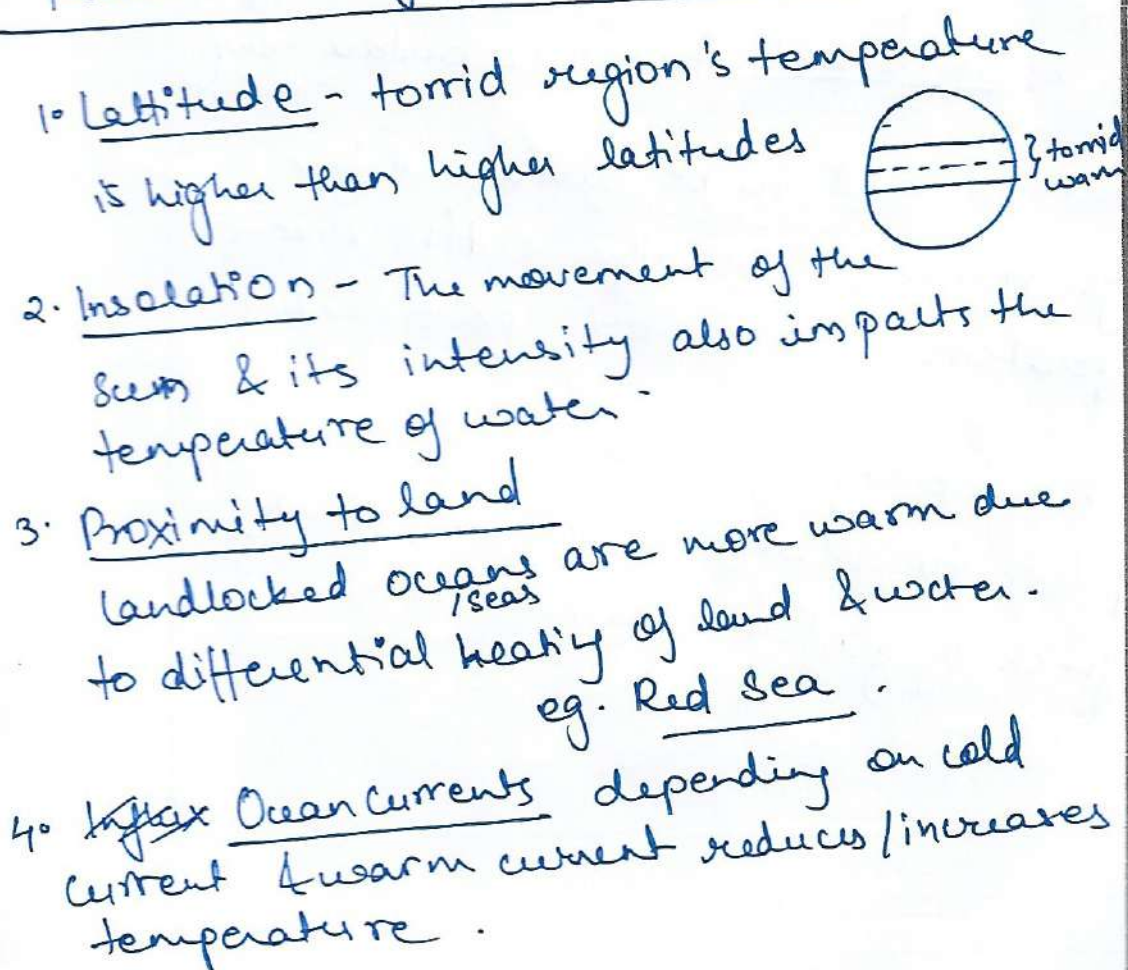 1. Lattitude - torrid region's temperature
is higher than higher latitudes
} torrid
warm
2. Insolation - The movement of the
sun & its intensity also impacts the
temperature of water.
3. Proximity to land
landlocked oceans are more warm due
/seas
to differential heating of land & water.
eg. Red Sea.
4. Influx Ocean Currents depending on cold
current & warm current reduces/increases
temperature.